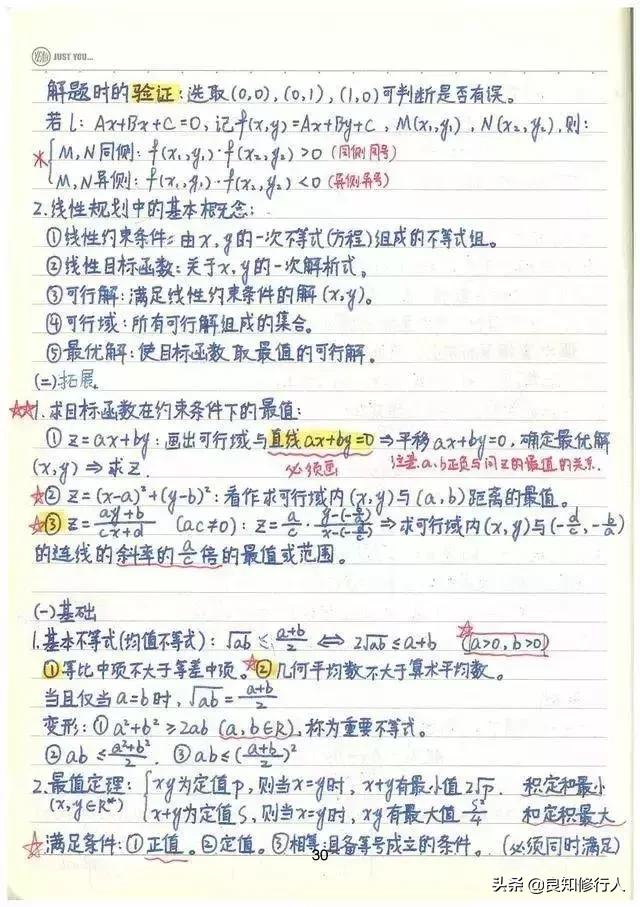 JUST YOU...
解题时的验证:选取(0,0),(0,1),(1,0)可判断是否有误。
若l:Ax+Bx+C=0,记f(x,y)=Ax+By+C,M(x₁,y₁),N(x₂,y₂),则:
M,N同侧:f(x₁,y₁)·f(x₂,y₂)>0(同侧同号)
M,N异侧:f(x₁,y₁)·f(x₂,y₂)<0(异侧异号)
2.线性规划中的基本概念:
①线性约束条件:由x,y的一次不等式(方程)组成的不等式组。
②线性目标函数:关于x,y的一次解析式。
③可行解:满足线性约束条件的解(x,y)。
④可行域:所有可行解组成的集合。
⑤最优解:使目标函数取最值的可行解。
(二)拓展
☆☆1.求目标函数在约束条件下的最值:
①z=ax+by:画出可行域与直线ax+by=0⇒平移ax+by=0,确定最优解
(x,y)⇒求z. 必须画 注意a、b正负与问z的最值的关系.
☆②z=(x-a)²+(y-b)²:看作求可行域内(x,y)与(a,b)距离的最值。
☆③z=(ay+b)/(cx+d) (ac≠0):z=a/c·(y-(-b/a))/(x-(-d/c))⇒求可行域内(x,y)与(-d/c,-b/a)
的连线的斜率的a/c倍的最值或范围。
(一)基础
1.基本不等式(均值不等式):√ab≤(a+b)/2⇔2√ab≤a+b ☆(a>0,b>0)
①等比中项不大于等差中项。☆②几何平均数不大于算术平均数。
当且仅当a=b时,√ab=(a+b)/2
变形:①a²+b²≥2ab(a,b∈R),称为重要不等式。
②ab≤(a²+b²)/2. ③ab≤((a+b)/2)²
2.最值定理:{xy为定值p,则当x=y时,x+y有最小值2√p. 积定和最小
(x,y∈R⁺) {x+y为定值S,则当x=y时,xy有最大值S²/4 和定积最大
☆满足条件:①正值。②定值。③相等:具备等号成立的条件。(必须同时满足)
30
头条@良知修行人